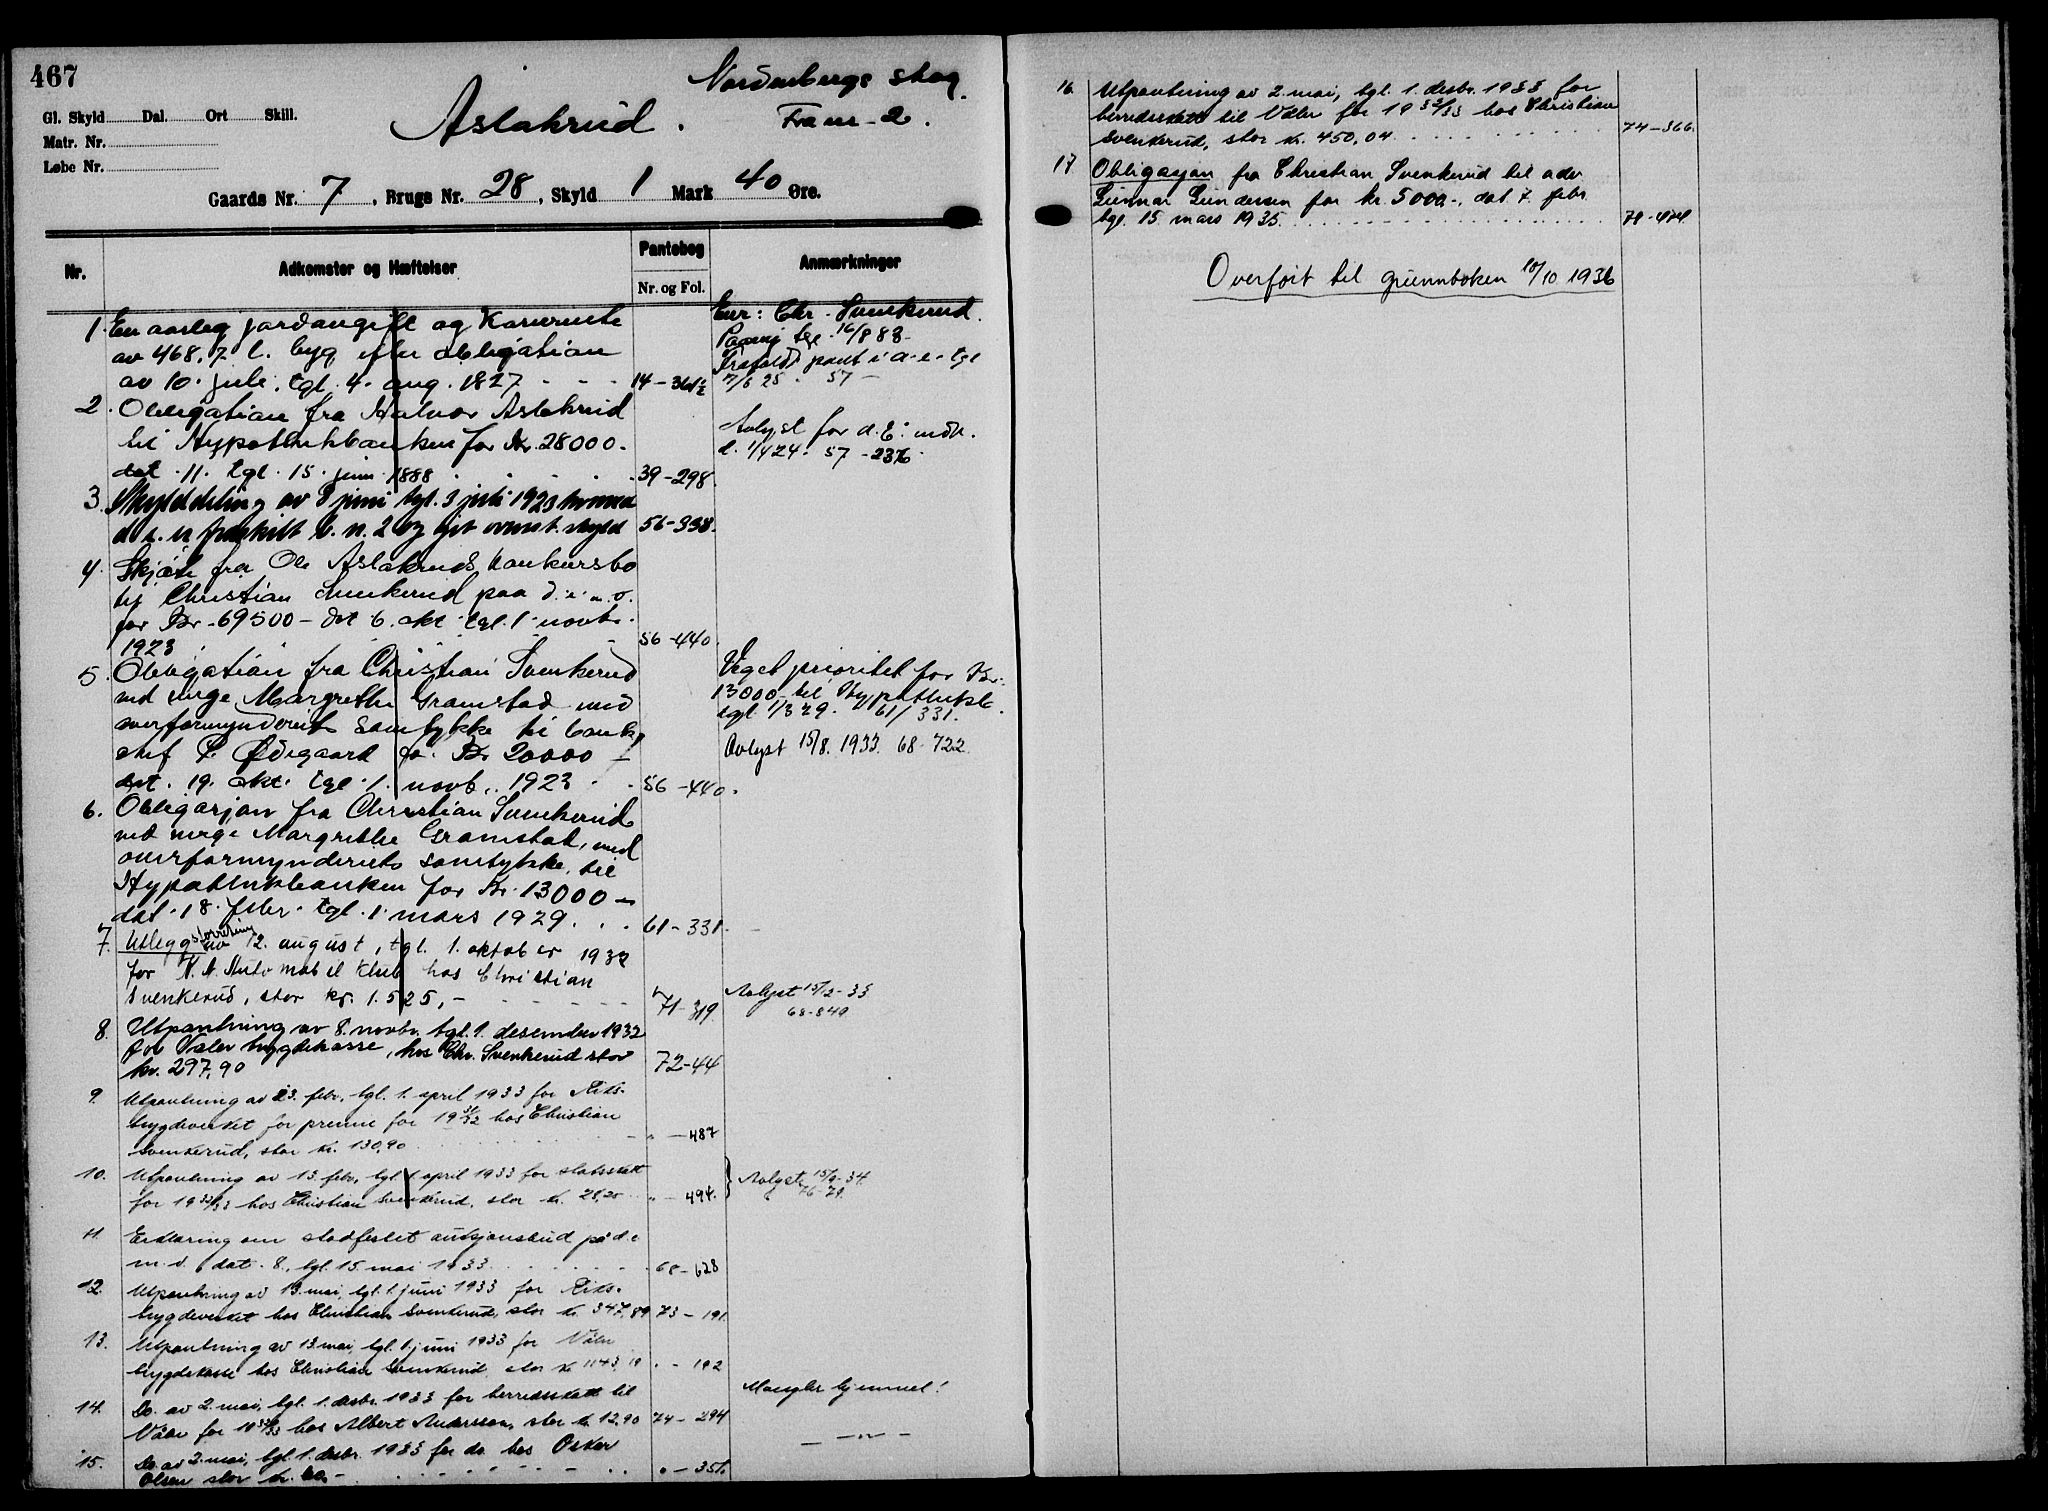 467
Nordenbergs skog.
Aslakrud. Fra m-2.
Gl. Skyld Dal. Ort Skill.
Matr. Nr.
Løbe Nr.
Gaards Nr. 7, Brugs Nr. 28, Skyld 1 Mark 40 Øre.
Nr. Adkomster og Hæftelser Pantebog Nr. og Fol. Anmærkninger
1. En aarleg jordavgift og
av 468,7 l. byg efter obligation
av 10. juli, tgl. 4. aug. 1827 - - - 14-
Eier: Chr. Svenkerud.
tgl. 16/8 88
pant i d. e. tgl
57 -
2. Obligation fra Halvor Aslakrud
til Hypothekbanken for Kr. 28000.-
dat. 11. tgl. 15. juni 1888 39-298.
Avlyst for d. E. vedk.
d. 1/4 24. 57 - 236
3. Skylddeling av 8 juni tgl. 3 juli 1923 hvorved
d. e. er fraskilt b. n. 2 og git ovenst. skyld 56-338.
4. Skjøte fra Ole Aslakruds konkursbo
til Christian Svenkerud paa d. e. m. v.
for Kr. 69500 - dat 6. okt. tgl. 1. novb.
1923 56-440.
5. Obligation fra Christian Svenkerud
ved verge Margrethe Gramstad med
overformynderiets samtykke til bank-
chef P. Ødegaard for Kr 20000 -
dat. 19. okt. tgl. 1. novb. 1923 56-440.
Veget prioritet for Kr.
13000 - til Hypothekb.
tgl. 1/3 29. 61/331.
Avlyst 15/8. 1933. 68-722
6. Obligasjon fra Christian Svenkerud
ved verge Margrethe Gramstad, med
overformynderiets samtykke, til
Hypothekbanken for Kr. 13000 -
dat. 18. febr. tgl. 1. mars 1929. . . 61-331.
7. Utleggsforretning av 12. august, tgl. 1. oktober 1932
for K. N. Automobil Klub hos Christian
Svenkerud, stor kr. 1.525,- - - - - 71-319.
Avlyst 15/2-33
68-849
8. Utpantning av 8. novbr. tgl. 1. desember 1932
for Våler bygdekasse, hos Chr. Svenkerud stor
kr. 297,90 72-44
9. Utpantning av 23. febr. tgl. 1. april 1933 for Riks-
trygdeverket for premie for 1931/32 hos Christian
Svenkerud, stor kr. 130,90 " - 487
10. Utpantning av 13. febr. tgl. 1. april 1933 for statsskatt
for 1932/33 hos Christian Svenkerud, stor kr. 28,20 " - 494.
76-79.
11. Erklæring om stadfestet auksjonsbud på d. e
m. v. dat. 8., tgl. 15 mai 1933 . . . 68-628
12. Utpantning av 13. mai, tgl. 1. juni 1933 for Riks-
trygdeverket hos Christian Svenkerud, stor kr. 347,89 73-191
13. Utpantning av 13. mai, tgl. 1. juni 1933 for Våler
bygdekasse hos Christian Svenkerud stor kr 1143,19 " - 192
14. Do. av 2. mai, tgl. 1. desbr. 1933 for herredsskatt til
Våler for 1932/33 hos Albert Anderssen, stor kr. 12,90 74-294
Mangler hjemmel!
15. Do. av 2. mai, tgl. 1. desbr. 1933 for do. hos Oskar
Olsen stor kr. . . . " - 351.
— " —
16. Utpantning av 2. mai, tgl. 1. desbr. 1933 for
herredsskatt til Våler for 1932/33 hos Christian
Svenkerud, stor kr. 450,04 . . . 74-366.
17 Obligasjon fra Christian Svenkerud til adv
Gunnar Gundersen for kr. 5000.-, dat. 7. febr
tgl. 15. mars 1935. . . .
Overført til grunnboken 10/10 1936